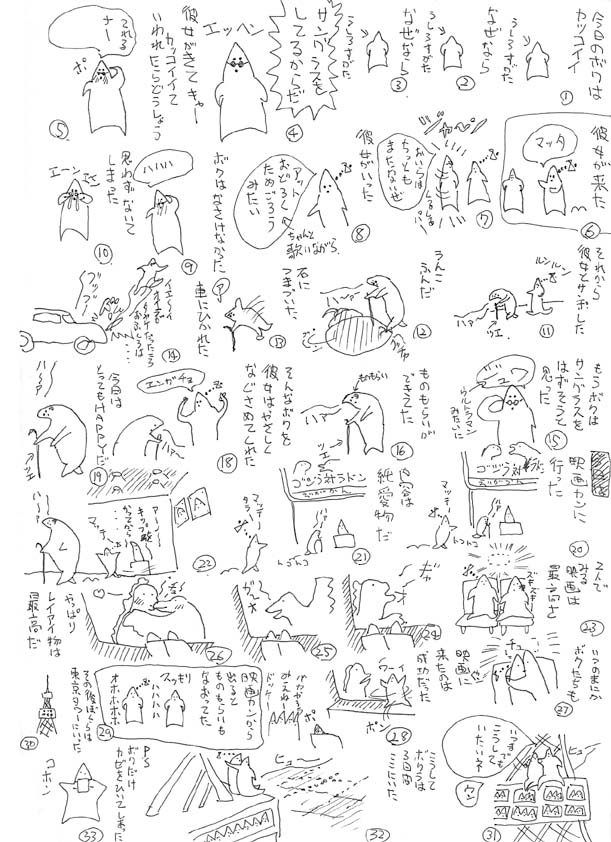 今日のボクは
カッコイイ
①
なぜなら
うしろすがた
②
なぜなら
うしろすがた
③
サングラスを
してるからだ
エッヘン
④
彼女がきてキャー
カッコイイて
いわれたらどうしよう
てれる
ナー
ポ
⑤
彼女が来た
マッタ
⑥
ジャペン
おいらは
ちっとも
まってないぜ
⑦
彼女がいった
アット
おどろく
ためごろう
みたい
ちゃんと
歌いながら
⑧
ボクはなさけなかった
ハハハ
⑨
思わずないて
しまった
エーン
⑩
それから
彼女とサンポした
ルンルン
ハア
ツエ
⑪
うんこ
ふんだ
ハアー
グチャ
⑫
石に
つまづいた
⑬
車にひかれた
ブッブー
⑭
もうボクは
サングラスを
はずそうと
思った
ウルトラマン
みたいに
⑮
ものもらいが
できてた
ものもらい
ハアー
ツエ
⑯
そんなボクを
彼女はやさしく
なぐさめてくれた
エンガチョ
⑱
今日は
とってもHAPPYだ
ハーア
ツエ
⑲
映画カンに
行った
ゴヅラ対ラドン
マッテー
トコトコ
⑳
内容は
純愛物だ
ゴヅラ対ラドン
えいがかん
㉑
マッテー
アーン
キップ
マッテ
ハーア
㉒
2人で
みる
映画は
最高さ
ズキズキ
㉓
ギャ
㉔
㉕
やっぱり
レイアイ物は
最高だ
㉖
いつのまにか
ボクたちも
チュ
㉗
映画に
来たのは
成功だった
ワーイ
ポン
㉘
映画カンから
出ると
ものもらいも
なおってた
スッキリ
ハハハハ
オホホホホ
㉙
その後ぼくらは
東京タワーにいった
㉚
いつまでも
こうして
いたいネ
ウン
ヒュー
㉛
こうして
ボクらは
3日間
ここにいた
ヒュー
㉜
P's
ボクだけ
カゼをひいてしまった
コホン
㉝